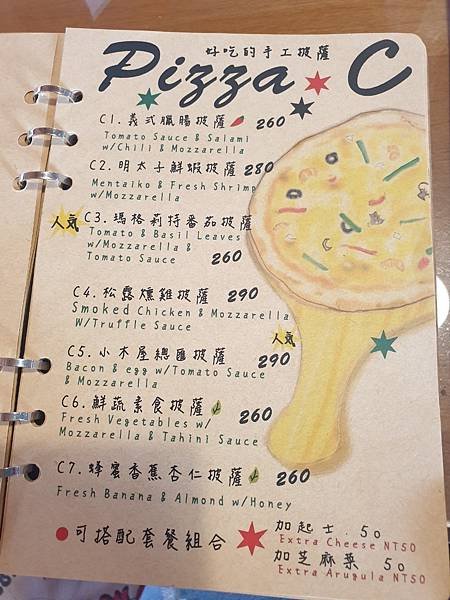 好吃的手工披薩
Pizza C
C1. 義式臘腸披薩 260
Tomato Sauce & Salami
w/Chili & Mozzarella
C2. 明太子鮮蝦披薩 280
Mentaiko & Fresh Shrimp
w/Mozzarella
人氣 C3. 瑪格莉特番茄披薩
Tomato & Basil Leaves
w/Mozzarella &
Tomato Sauce 260
C4. 松露燻雞披薩 290
Smoked Chicken & Mozzarella
W/Truffle Sauce
人氣
C5. 小木屋總匯披薩 290
Bacon & egg w/Tomato Sauce
& Mozzarella
C6. 鮮蔬素食披薩 260
Fresh Vegetables w/
Mozzarella & Tahini Sauce
C7. 蜂蜜香蕉杏仁披薩 260
Fresh Banana & Almond w/Honey
可搭配套餐組合
加起士. 50
Extra Cheese NT50
加芝麻葉 50
Extra Arugula NT50